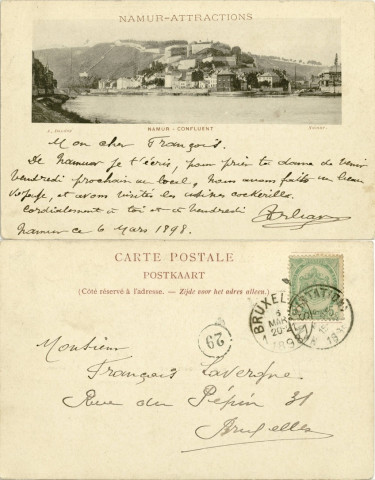 NAMUR-ATTRACTIONS
NAMUR - CONFLUENT
Mon cher François.
De Namur je t'écris, pour prier ta dame de venir
Vendredi prochain au local, Nous avons faits un beau
voyage, et avons visités les usines cockerille.
Cordialement à toi et à vendredi
Namur ce 6 Mars 1898.
CARTE POSTALE
POSTKAART
(Côté réservé à l'adresse. — Zijde voor het adres alleen.)
BRUXELLES
6
MARS
1898
29
Monsieur
François Lavergne
Rue du Pépin 31
Bruxelles